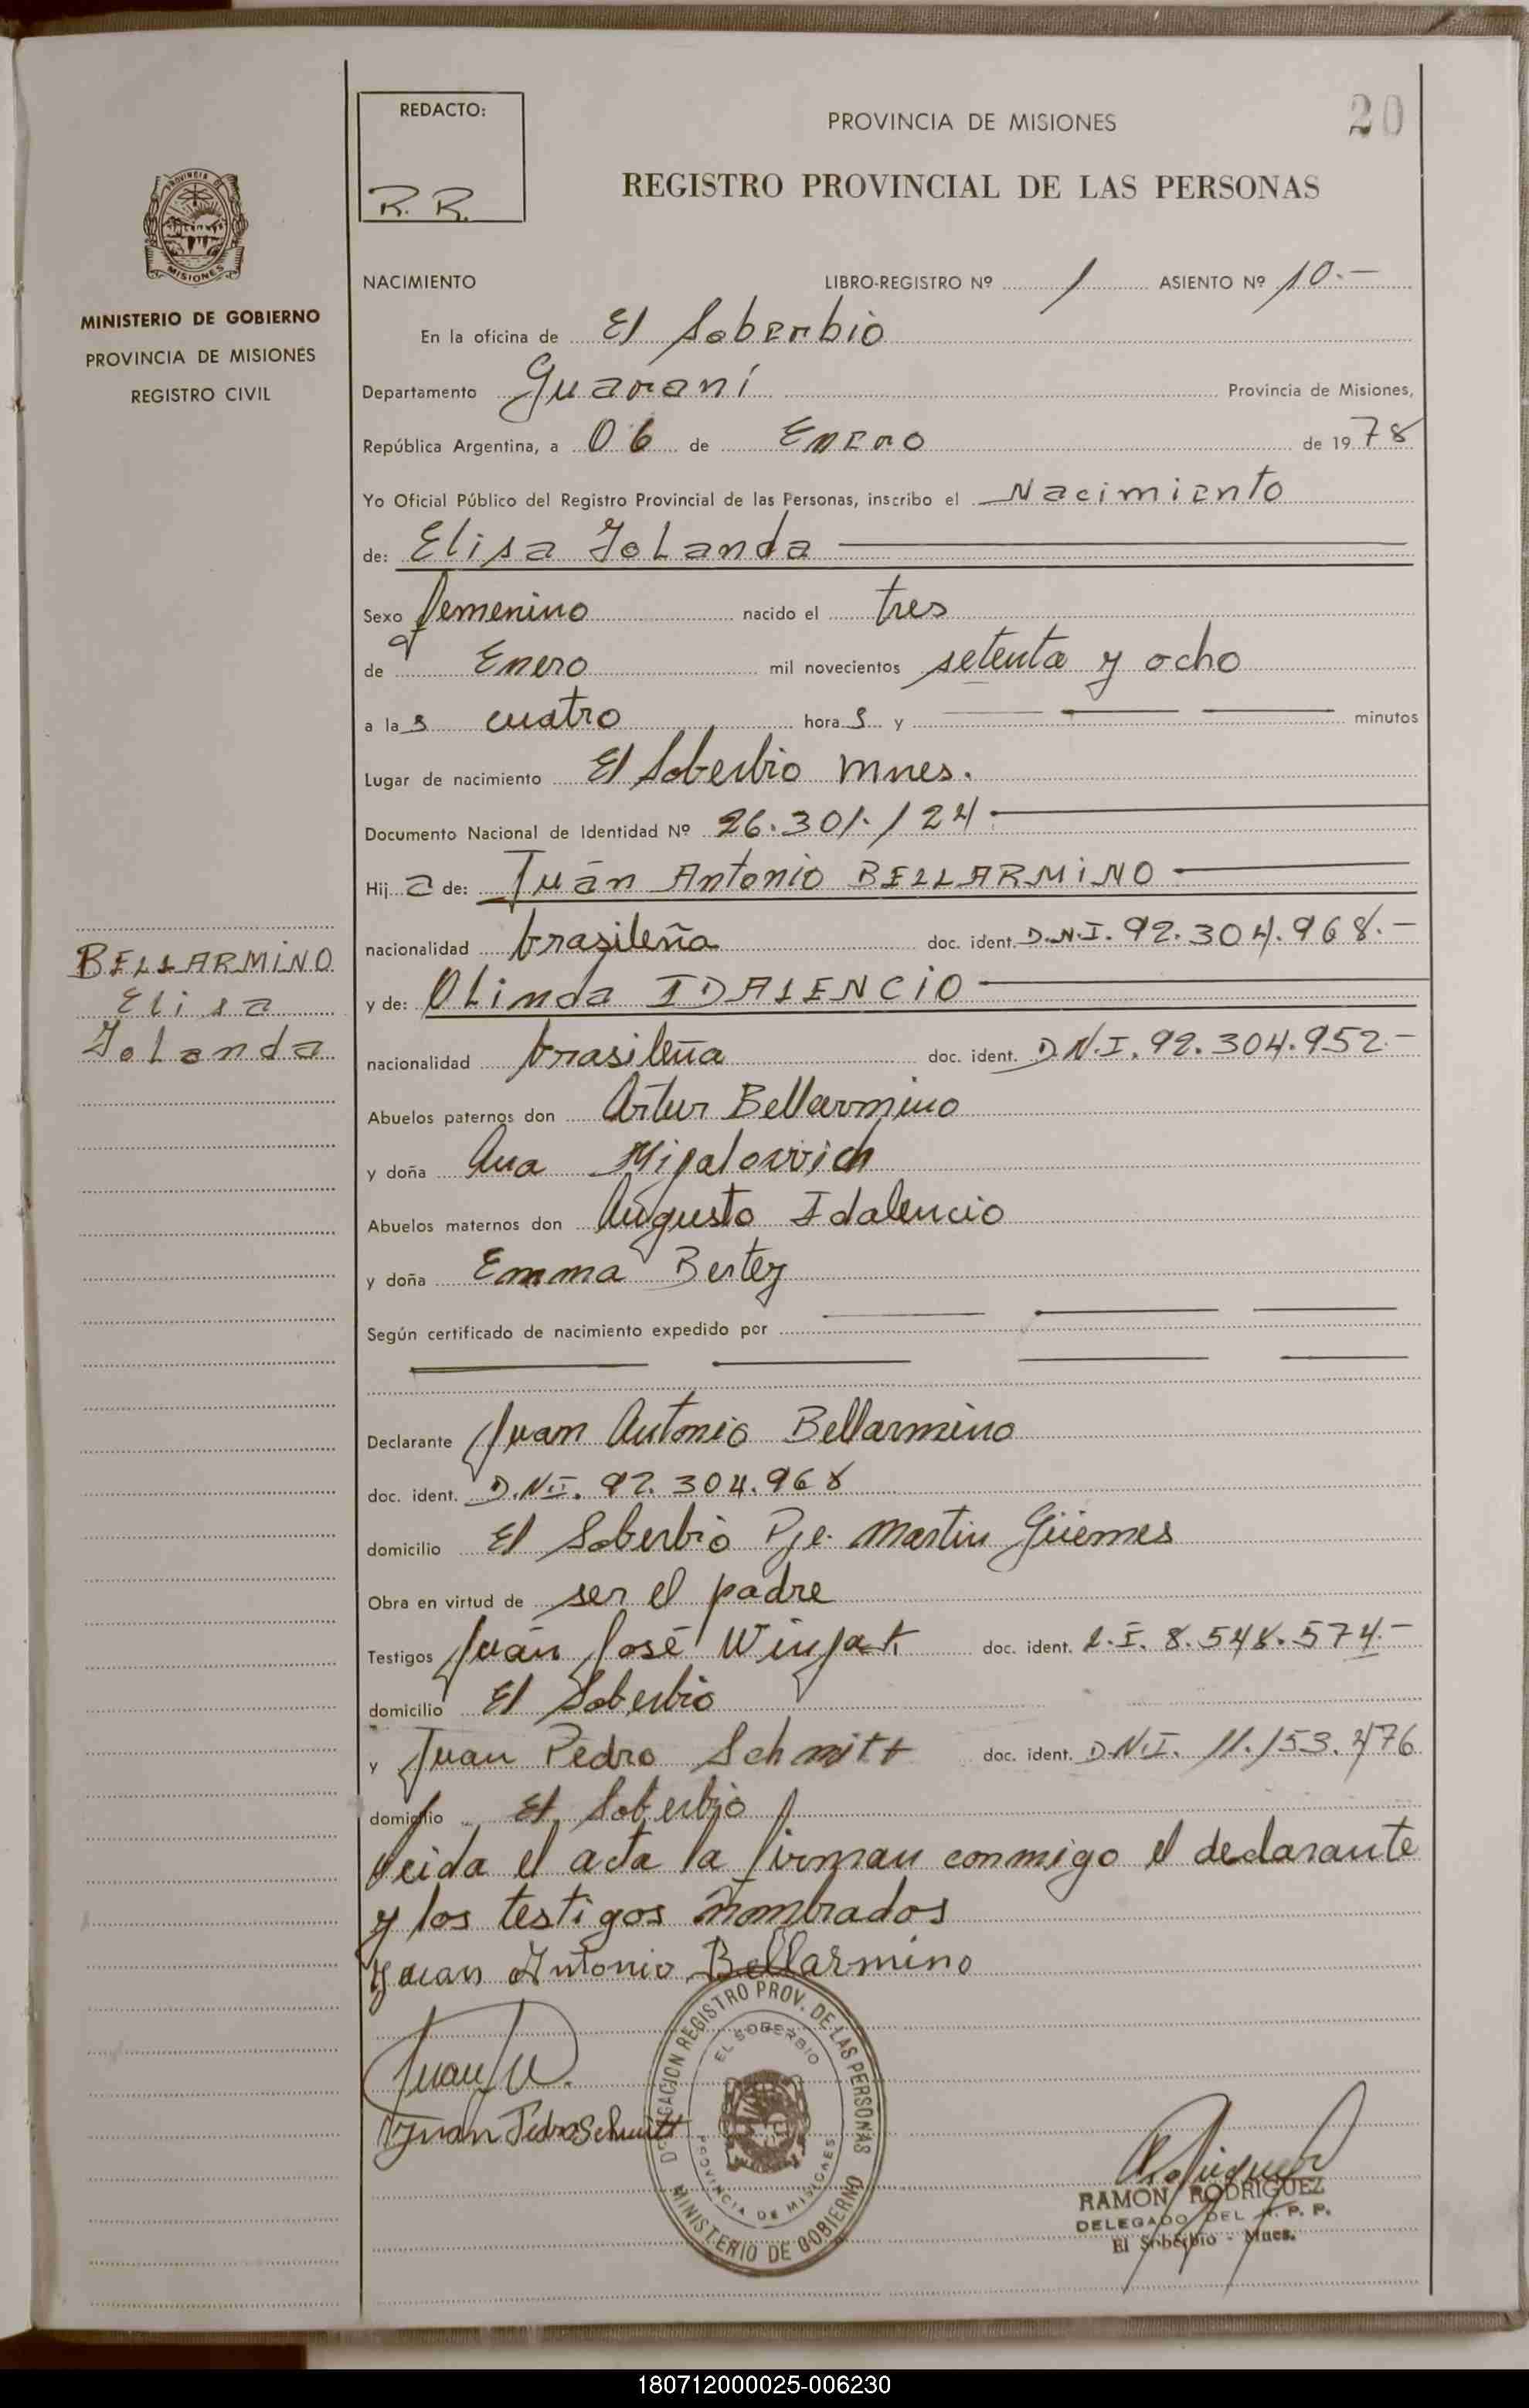 REDACTO:
R. R.
PROVINCIA DE MISIONES
20
REGISTRO PROVINCIAL DE LAS PERSONAS
PROVINCIA DE
MISIONES
MINISTERIO DE GOBIERNO
PROVINCIA DE MISIONES
REGISTRO CIVIL
NACIMIENTO LIBRO-REGISTRO Nº 1 ASIENTO Nº 10.—
En la oficina de El Soberbio
Departamento Guaraní Provincia de Misiones,
República Argentina, a 06 de Enero de 1978
Yo Oficial Público del Registro Provincial de las Personas, inscribo el Nacimiento
de: Elisa Yolanda
Sexo femenino nacido el tres
de Enero mil novecientos setenta y ocho
a las cuatro horas y — — — minutos
Lugar de nacimiento El Soberbio Mnes.
Documento Nacional de Identidad Nº 26.301.124
Hija de: Juán Antonio BELLARMINO
nacionalidad brasileña doc. ident. D.N.I. 92.304.968.—
y de: Olinda IDALENCIO
nacionalidad brasileña doc. ident. D.N.I. 92.304.952.—
BELLARMINO
Elisa
Yolanda
Abuelos paternos don Artur Bellarmino
y doña Ana
Abuelos maternos don Augusto Idalencio
y doña Emma
Según certificado de nacimiento expedido por — — —
— — — —
Declarante Juan Antonio Bellarmino
doc. ident. D.N.I. 92.304.968
domicilio El Soberbio Pje. Martin Güemes
Obra en virtud de ser el padre
Testigos Juán José doc. ident. L.I. 8.548.574.—
domicilio El Soberbio
y Juan Pedro Schmitt doc. ident. D.N.I. 11.153.476
domicilio El Soberbio
leida el acta la firman conmigo el declarante
y los testigos nombrados
Juan Antonio Bellarmino
Juan
Juan Pedro Schmitt
DELEGACION REGISTRO PROV. DE LAS PERSONAS
EL SOBERBIO
PROVINCIA DE MISIONES
MINISTERIO DE GOBIERNO
RAMON RODRIGUEZ
DELEGADO DEL R. P. P.
El Soberbio - Mnes.
180712000025-006230